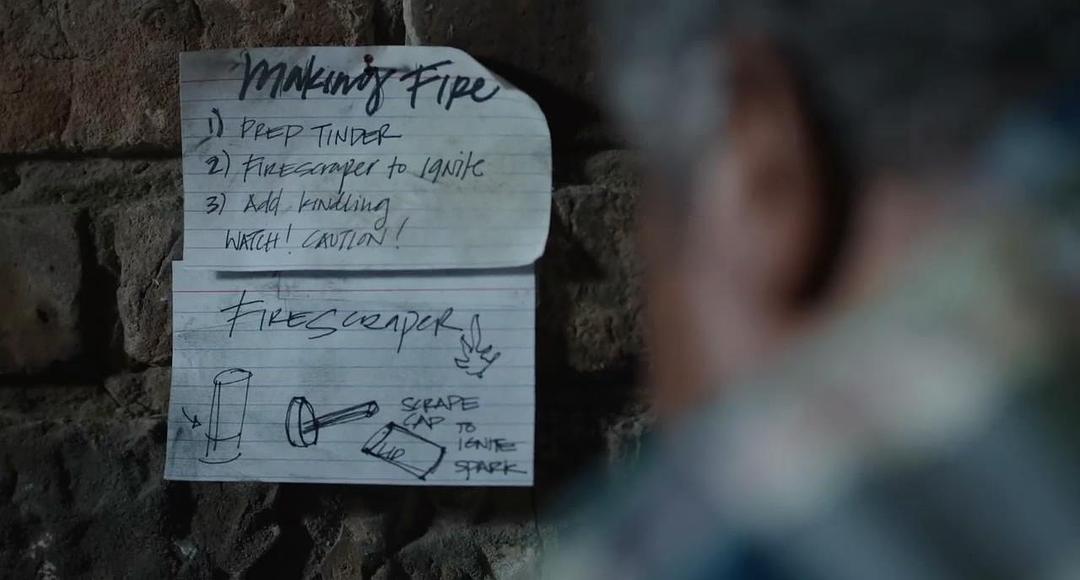 Making Fire
1) PREP TINDER
2) Firescraper to ignite
3) Add kindling
WATCH! CAUTION!
FIRESCRAPER
SCRAPE
CAP TO
IGNITE
SPARK